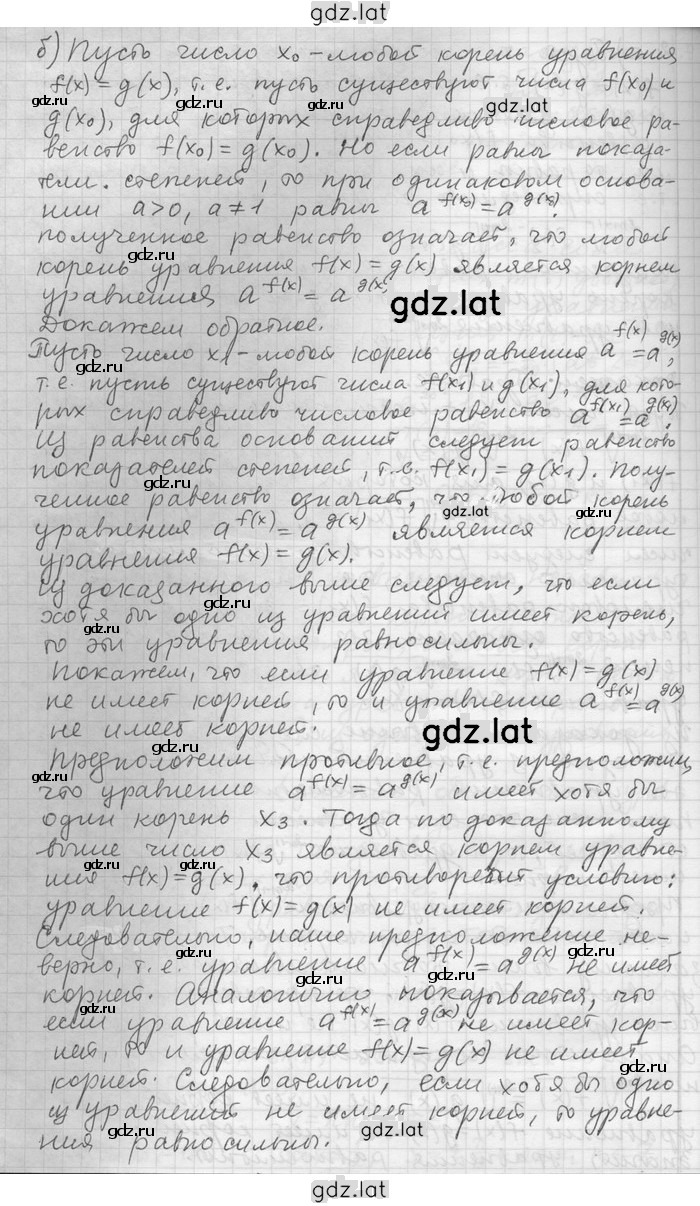 gdz.lat
б) Пусть число x₀ - любой корень уравнения
f(x) = g(x), т.е. пусть существуют числа f(x₀) и
gdz.lat gdz.lat gdz.lat
g(x₀), для которых справедливо числовое ра-
венство f(x₀) = g(x₀). Но если равны показа-
тели степеней, то при одинаковом основа-
gdz.lat gdz.lat
нии a>0, a≠1 равны a^f(x₀) = a^g(x₀).
полученное равенство означает, что любой
корень уравнения f(x) = g(x) является корнем
уравнения a^f(x) = a^g(x).
gdz.lat
Докажем обратное.
Пусть число x₁ - любой корень уравнения a^f(x) = a^g(x),
gdz.lat gdz.lat
т.е. пусть существуют числа f(x₁) и g(x₁), для кото-
рых справедливо числовое равенство a^f(x₁) = a^g(x₁).
Из равенства оснований следует равенство
показателей степеней, т.е. f(x₁) = g(x₁). Полу-
gdz.lat
ченное равенство означает, что любой корень
gdz.lat gdz.lat
уравнения a^f(x) = a^g(x) является корнем
уравнения f(x) = g(x).
Из доказанного выше следует, что если
gdz.lat gdz.lat
хотя бы одно из уравнений имеет корень,
то эти уравнения равносильны.
Покажем, что если уравнение f(x) = g(x)
gdz.lat gdz.lat
не имеет корней, то и уравнение a^f(x) = a^g(x)
не имеет корней.
gdz.lat gdz.lat
Предположим противное, т.е. предположим,
gdz.lat gdz.lat
что уравнение a^f(x) = a^g(x) имеет хотя бы
один корень x₃. Тогда по доказанному
выше число x₃ является корнем уравне-
gdz.lat gdz.lat
ния f(x) = g(x), что противоречит условию:
уравнение f(x) = g(x) не имеет корней.
Следовательно, наше предположение не-
gdz.lat gdz.lat
верно, т.е. уравнение a^f(x) = a^g(x) не имеет
корней. Аналогично показывается, что
gdz.lat
если уравнение a^f(x) = a^g(x) не имеет кор-
gdz.lat gdz.lat
ней, то и уравнение f(x) = g(x) не имеет
корней. Следовательно, если хотя бы одно
gdz.lat gdz.lat
из уравнений не имеет корней, то уравне-
gdz.lat gdz.lat
ния равносильны.
gdz.lat